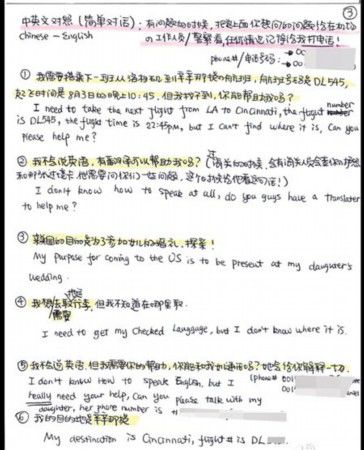 ③
中英文对照(简单对话):有问题的时候,把我上面你想问的问题给在机场
Chinese — English 的工作人员/警察看,任何情况记得给我打电话!
phone#/电话号码:→ 00
→ 00
① 我需要搭乘下一班从洛杉矶到辛辛那提的航班,航班号是DL545,
起飞时间是8月3日的晚上10:45,但我找不到,你能帮助我吗?
I need to take the next flight from LA to Cincinnati, the flight number
is DL545, the flight time is 22:45pm, but I can't find where it is, Can you
please help me?
② 我不会说英语,有翻译可以帮助我吗?(过海关的时候,会有海关人员查你的护照
和 他需要问你们一些问题,这个时候给他看这句话!)
I don't know how to speak at all, do you guys have a translater
to help me?
③ 来美国的目的是为了参加女儿的婚礼,探亲!
My purpose for coming to the US is to be present at my daughter's
wedding.
④ 我需要去取托运行李,但我不知道在哪里取.
I need to get my checked Langyage, but I don't know where it is.
⑤ 我不会说英语,但我需要你的帮助,你能和我女儿通话吗?她会给你解释一切.
I don't know How to speak English, but I (phone# 001
really need your help, Can you please talk with my 001
daughter, her phone number is #
⑥ 我的目的地是辛辛那提
My destination is Cincinnati, flight # is DL